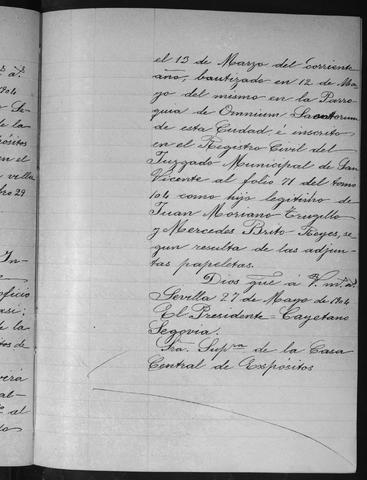 el 13 de Marzo del corriente
año, bautizado en 12 de Ma-
yo del mismo en la Parro
quia de Omnium Sanctorum
de esta Ciudad é inscrito
en el Registro Civil del
Juzgado Municipal de San
Vicente al folio 71 del tomo
104 como hijo legitimo de
Juan Moriano Trugillo
y Mercedes Brito Reyes, se-
gun resulta de las adjun-
tas papeletas.
Dios gue á V. m. a.
Sevilla 27 de Mayo de 1904
El Presidente = Cayetano
Segovia.
Sra. Supra de la Casa
Central de Expósitos